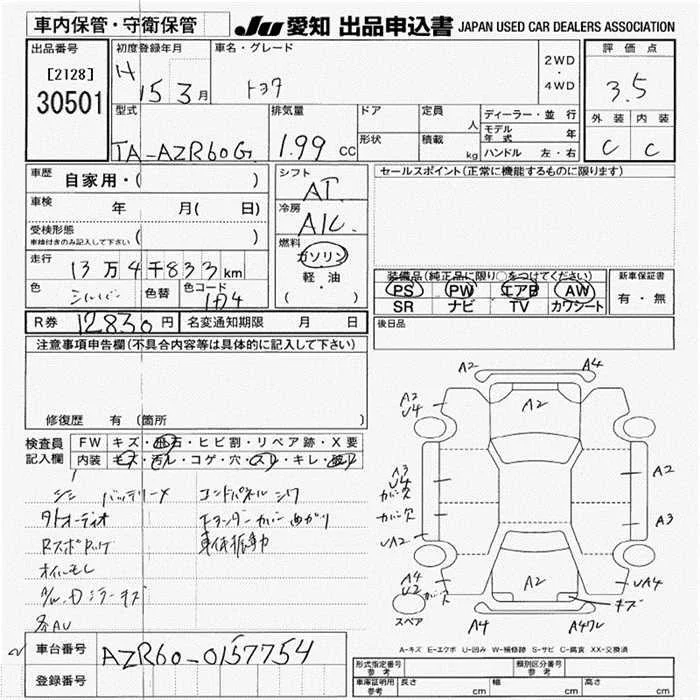 車内保管・守衛保管 JU 愛知 出品申込書 JAPAN USED CAR DEALERS ASSOCIATION
出品番号 初度登録年月 車名・グレード 2WD・4WD 評価点
[2128] H 15 3月 トヨタ 3.5
30501
型式 排気量 ドア 定員 人 ディーラー・並行 外装 内装
形状 積載 kg モデル年式 年
TA-AZR60G 1.99 CC ハンドル 左・右 C C
車歴 自家用・( ) シフト AT セールスポイント(正常に機能するものに限ります)
車検 年 月( 日) 冷房 A/C
受検形態 車検付きのみ記入して下さい ( ) 燃料 ガソリン
走行 13万4千833km 軽・油 装備品(純正品に限り○をつけてください) 新車保証書
色 シルバー 色替 色コード 1D4 (・) PS PW エアB AW 有・無
SR ナビ TV カワシート
R券 12830円 名変通知期限 月 日 後日品
注意事項申告欄(不具合内容等は具体的に記入して下さい)
修復歴 有 (箇所 )
検査員記入欄 FW キズ・飛石・ヒビ割・リペア跡・X要
内装 キズ・汚レ・コゲ・穴・スレ・キレ・破レ
バッテリーX コンドパネル シワ
オーディオ
オイルモレ
各AU
A2 A4
A2
A2
U4
A3
U4
カバー欠
カバー欠
UA2
A2
A3
A4
U2
カバーズ
A2
UA4
キズ
スペア
A4
A-キズ E-エクボ U-凹み W-補修跡 S-サビ C-腐食 XX-交換済
車台番号 AZR60-0157754
登録番号
形式指定番号 参考 類別区分番号 参考
車庫証明用 参考 長さ cm 幅 cm 高さ cm